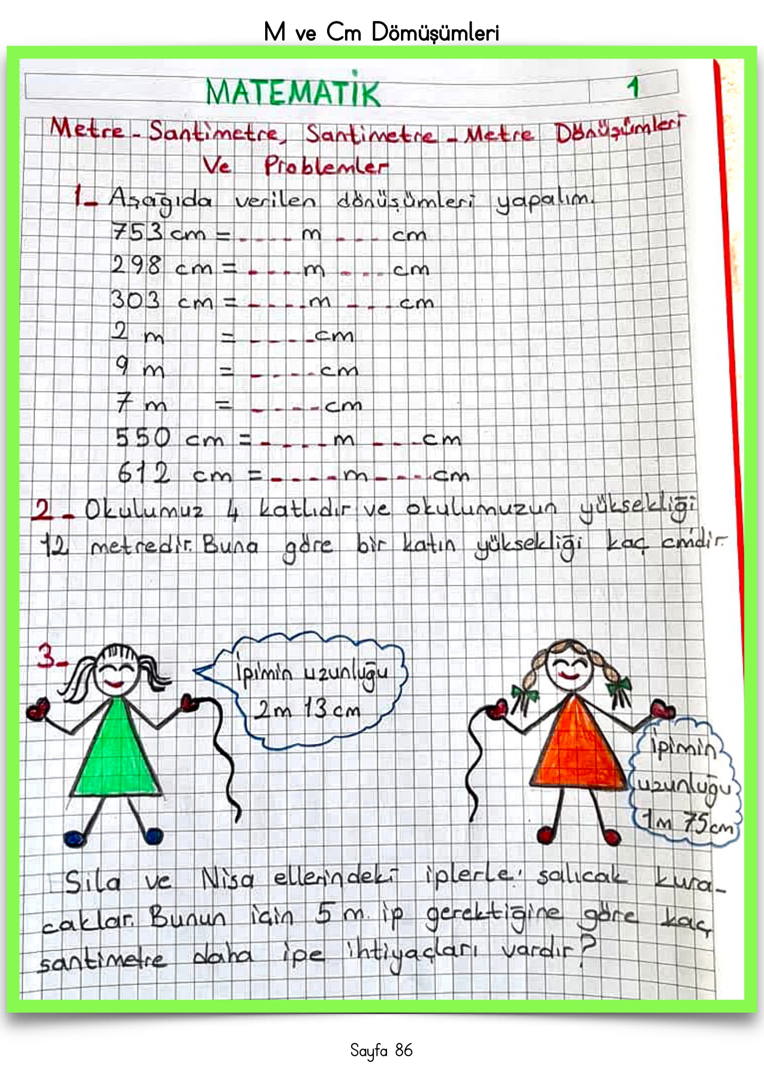 M ve Cm Dömüşümleri
MATEMATİK 1
Metre - Santimetre, Santimetre - Metre Dönüşümleri
Ve Problemler
1- Aşağıda verilen dönüşümleri yapalım.
753 cm = ..... m ..... cm
298 cm = ..... m ..... cm
303 cm = ..... m ..... cm
2 m = ..... cm
9 m = ..... cm
7 m = ..... cm
550 cm = ..... m ..... cm
612 cm = ..... m ..... cm
2- Okulumuz 4 katlıdır ve okulumuzun yüksekliği
12 metredir. Buna göre bir katın yüksekliği kaç cmdir.
3-
İpimin uzunluğu
2m 13 cm
İpimin
uzunluğu
1m 75cm
Sıla ve Nisa ellerindeki iplerle salıcak kura-
caklar. Bunun için 5 m. ip gerektiğine göre kaç
santimetre daha ipe ihtiyaçları vardır?
Sayfa 86